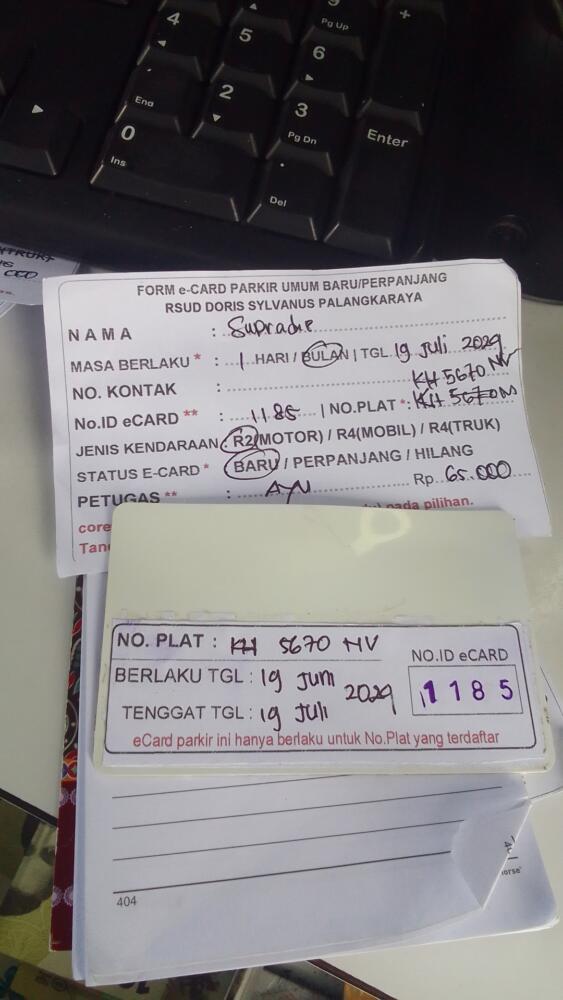 9
Pg Up
+
4
5
6
End
2
3
Pg Dn
Enter
0
Ins
.
Del
000
FORM e-CARD PARKIR UMUM BARU/PERPANJANG
RSUD DORIS SYLVANUS PALANGKARAYA
NAMA : Supradie
MASA BERLAKU * : 1 HARI / BULAN | TGL 19 Juli 2029
NO. KONTAK : KH 5670 NV
No.ID eCARD ** : 1185 | NO.PLAT * : KH 5670
JENIS KENDARAAN : R2(MOTOR) / R4(MOBIL) / R4(TRUK)
STATUS E-CARD * BARU / PERPANJANG / HILANG
PETUGAS ** : AYU Rp 65.000
core pada pilihan.
Tan
NO. PLAT : KH 5670 NV
NO.ID eCARD
BERLAKU TGL : 19 Juni 2029
1185
TENGGAT TGL : 19 Juli
eCard parkir ini hanya berlaku untuk No.Plat yang terdaftar
404